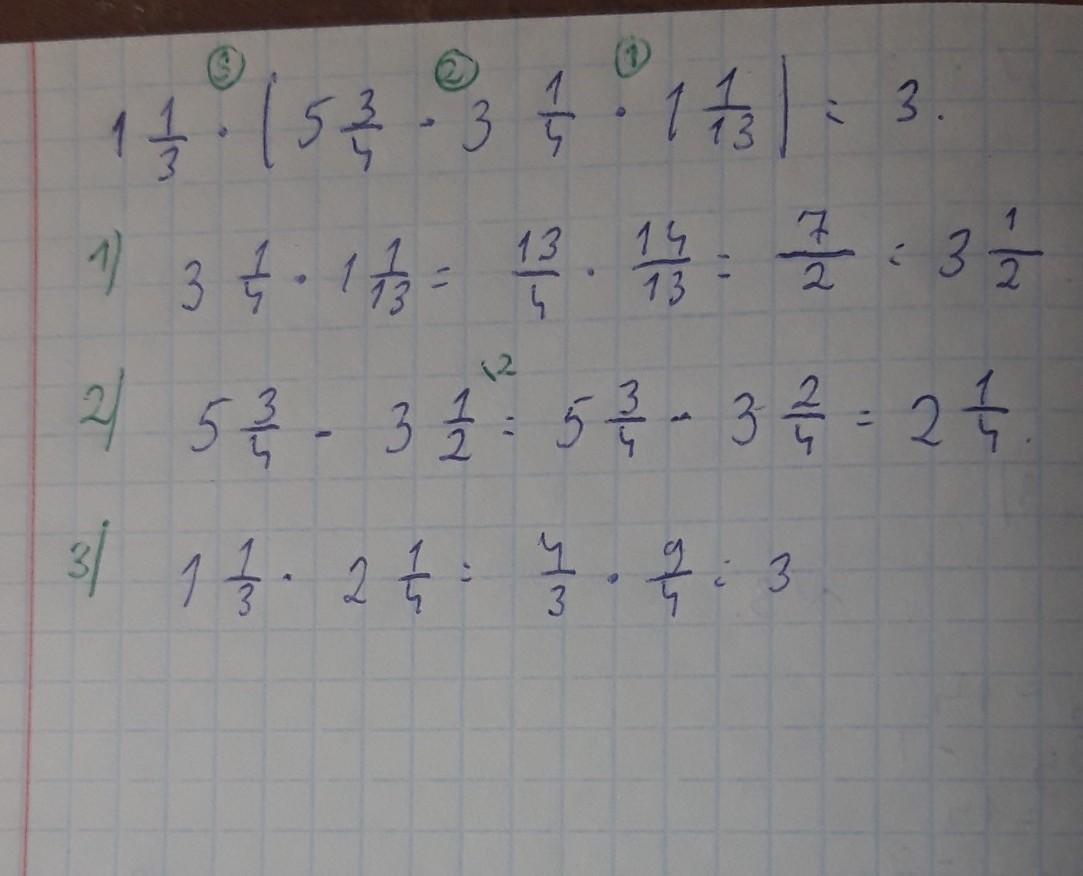 ③ ② ①
1 1/3 · (5 3/4 - 3 1/4 · 1 1/13) = 3.
1) 3 1/4 · 1 1/13 = 13/4 · 14/13 = 7/2 = 3 1/2
2) 5 3/4 - 3 1/2 \2 = 5 3/4 - 3 2/4 = 2 1/4.
3) 1 1/3 · 2 1/4 = 4/3 · 9/4 = 3